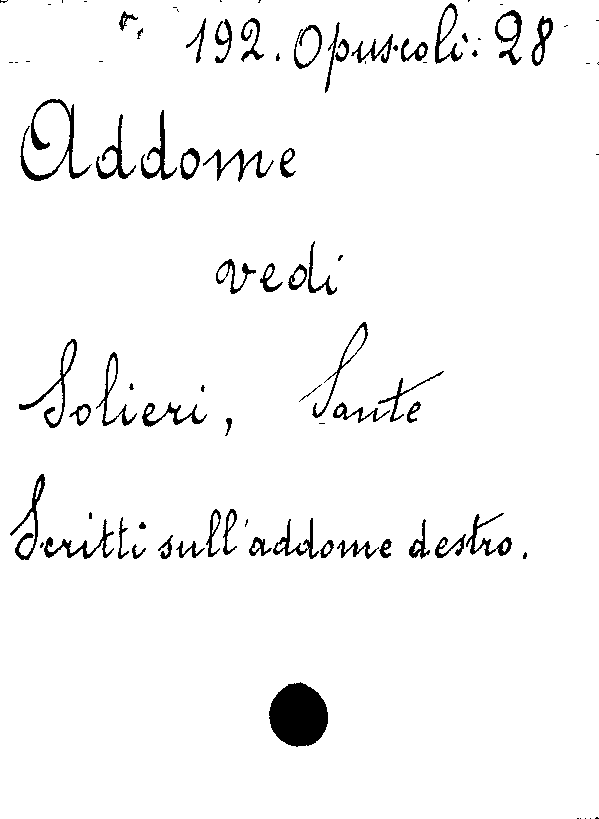 r. 192. Opuscoli: 28
Addome
vedi
Solieri, Sante
Scritti sull'addome destro.